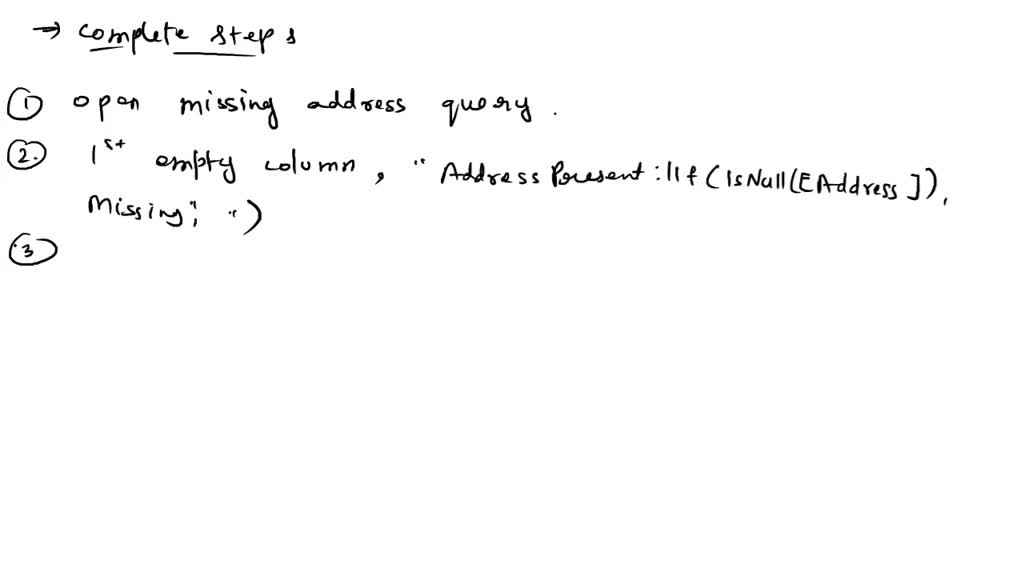 → complete steps
① open missing address query.
②. 1st empty column, "AddressPresent:IIf(IsNull(EAddress]),
Missing", ")
③